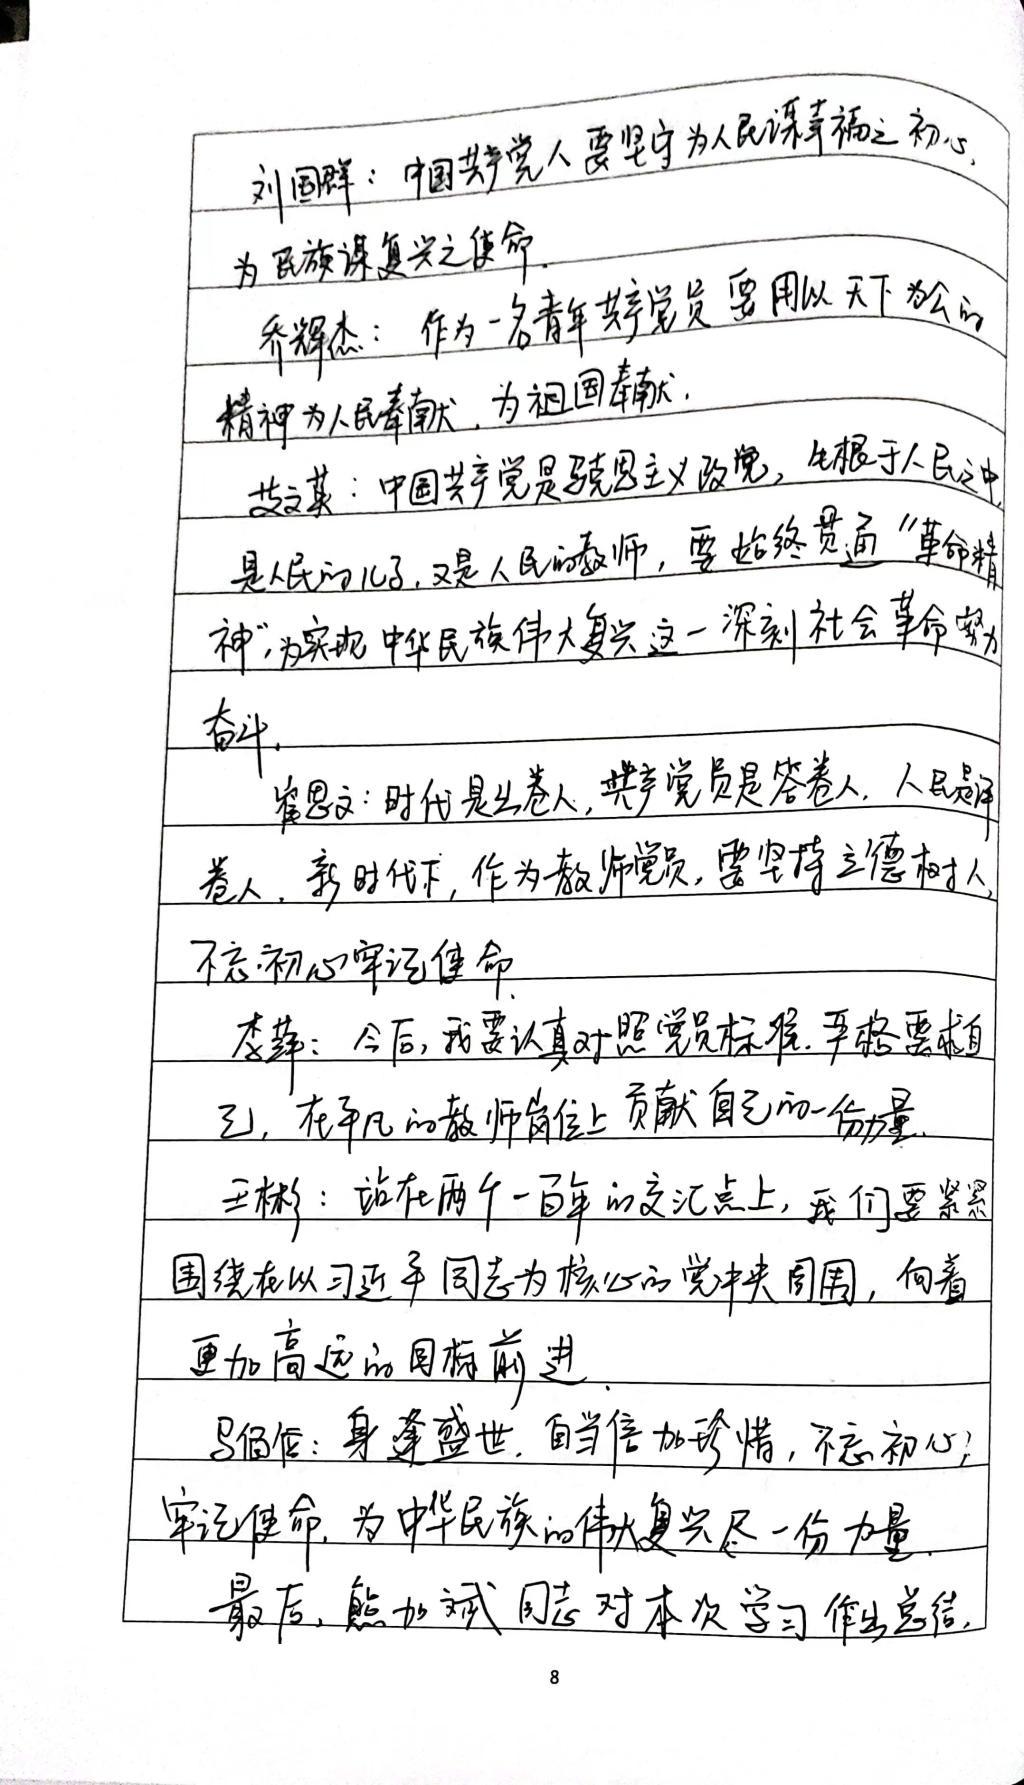 刘国群：中国共产党人要坚守为人民谋幸福之初心，
为民族谋复兴之使命．
乔辉杰：作为一名青年共产党员要用以天下为公的
精神为人民奉献，为祖国奉献．
艾文英：中国共产党是马克思主义政党，生根于人民之中，
是人民的儿子，又是人民的教师，要始终贯通“革命精
神”，为实现中华民族伟大复兴这一深刻社会革命努力
奋斗．
崔思文：时代是出卷人，共产党员是答卷人，人民是评
卷人．新时代下，作为教师党员，要坚持立德树人，
不忘初心牢记使命．
李萍：今后，我要认真对照党员标准．严格要求自
己，在平凡的教师岗位上贡献自己的一份力量．
王彬：站在两个一百年的交汇点上，我们要紧紧
围绕在以习近平同志为核心的党中央周围，向着
更加高远的目标前进．
马佰：身逢盛世．自当倍加珍惜，不忘初心；
牢记使命．为中华民族的伟大复兴尽一份力量．
最后，熊加斌同志对本次学习作出总结，
8